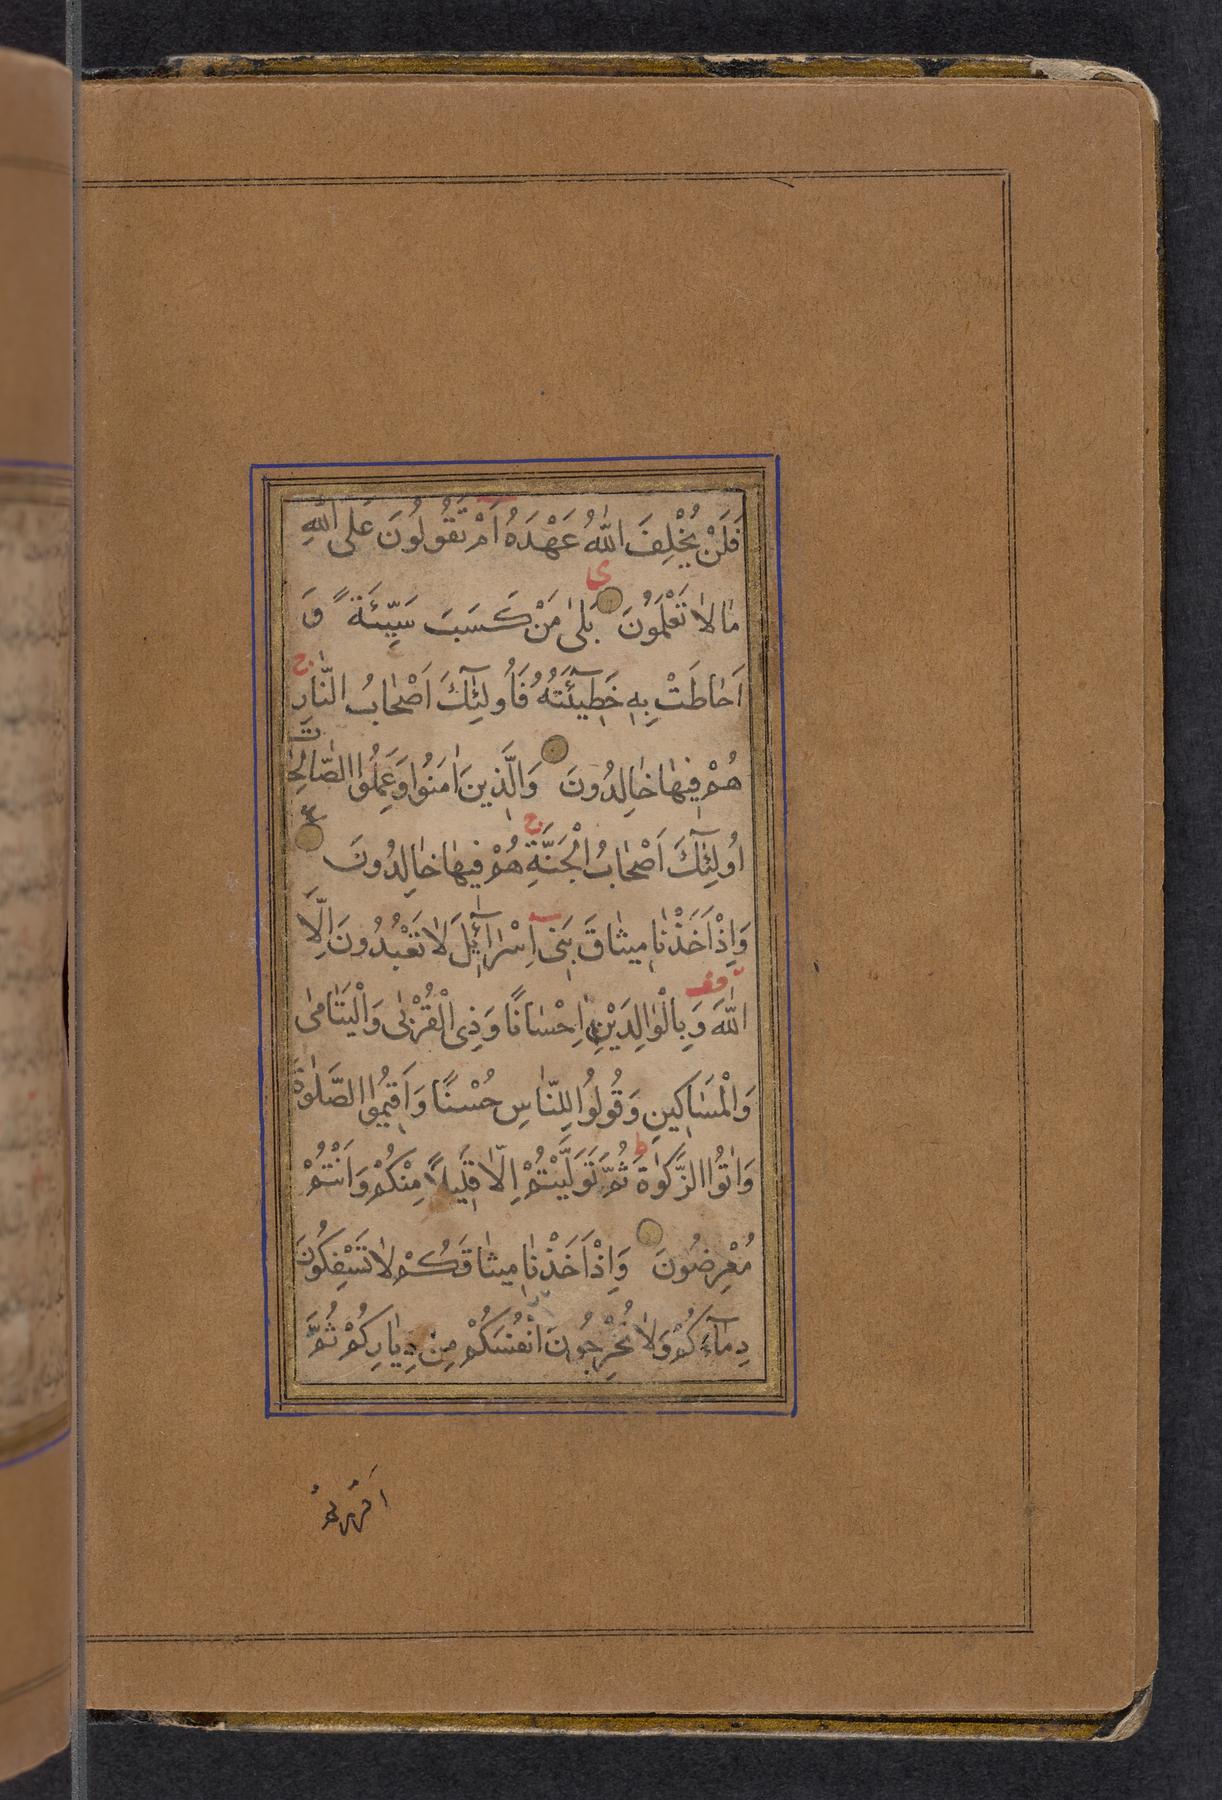 فَلَنْ يُخْلِفَ اللّٰهُ عَهْدَهُ اَمْ تَقُولُونَ عَلَى اللّٰهِ
مٰا لاٰ تَعْلَمُونَ بَلىٰ مَنْ كَسَبَ سَيِّئَةً وَ
اَحٰاطَتْ بِهِ خَطِيٓئَتُهُ فَاُولٰٓئِكَ اَصْحٰابُ النّٰارِ
هُمْ فِيهٰا خٰالِدُونَ وَالَّذِينَ اٰمَنُوا وَعَمِلُوا الصّٰالِحٰاتِ
اُولٰٓئِكَ اَصْحٰابُ الْجَنَّةِ هُمْ فِيهٰا خٰالِدُونَ
وَاِذْ اَخَذْنٰا مِيثٰاقَ بَنِى اِسْرٰآئِيلَ لاٰ تَعْبُدُونَ اِلَّا
اللّٰهَ وَبِالْوٰالِدَيْنِ اِحْسٰانًا وَذِى الْقُرْبٰى وَالْيَتٰامىٰ
وَالْمَسٰاكِينِ وَقُولُوا لِلنّٰاسِ حُسْنًا وَاَقِيمُوا الصَّلٰوةَ
وَاٰتُوا الزَّكٰوةَ ثُمَّ تَوَلَّيْتُمْ اِلّاٰ قَلِيلاً مِنْكُمْ وَاَنْتُمْ
مُعْرِضُونَ وَاِذْ اَخَذْنٰا مِيثٰاقَكُمْ لاٰ تَسْفِكُونَ
دِمٰآءَكُمْ وَلاٰ تُخْرِجُونَ اَنْفُسَكُمْ مِنْ دِيٰارِكُمْ ثُمَّ
اَقْرَرْتُمْ